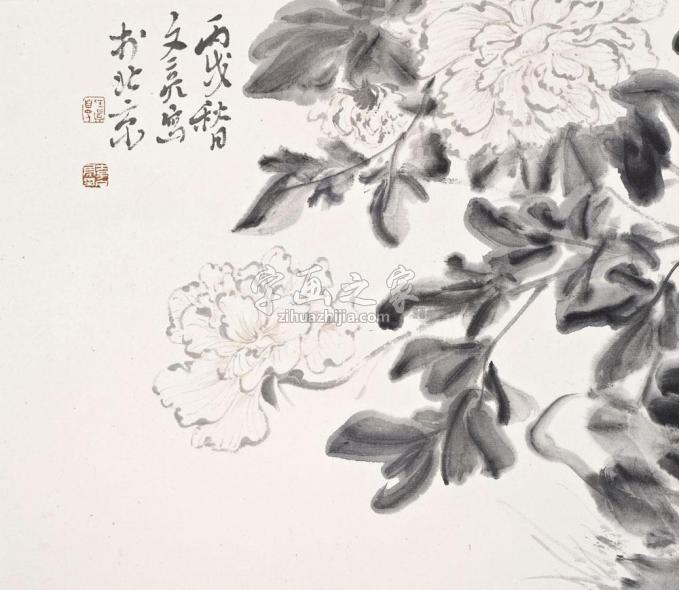 丙戌秋月
文亮寫
於北京
字画之家
zihuazhijia.com